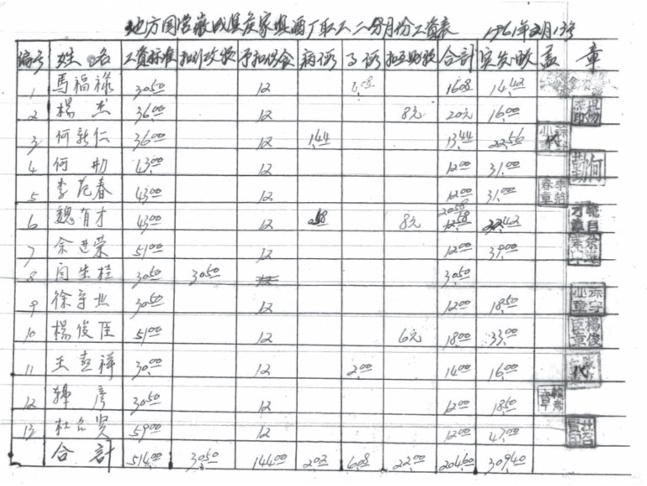 地方国营 县 家 酒厂职工二分月份工资表 1961年2月13号
编号 姓名 工资标准 扣 预扣伙食 病 事 扣互助款 合計 实发数 盖章
1 馬福禄 30.50 12 4.08 16.08 14.42
2 楊杰 36.00 12 8元 20元 16.00
3 何新仁 36.00 12 1.44 13.44 22.56
4 何勋 43.00 12 12.00 31.00
5 李范春 43.00 12 12.00 31.00
6 魏自才 43.00 12 .58 8元 20.58 12.58 22.42
7 余进荣 51.00 12 12.00 39.00
8 闫生桂 30.50 30.50 30.50
9 徐守业 30.50 12 12.00 18.50
10 楊俊臣 51.00 12 6元 18.00 33.00
11 王 祥 30.00 12 2.00 14.00 16.00
12 韩彦 30.50 12 12.00 18.50
13 杜 贤 59.00 12 12.00 47.00
合計 514.00 30.50 144.00 2.02 6.08 22.00 204.60 309.40